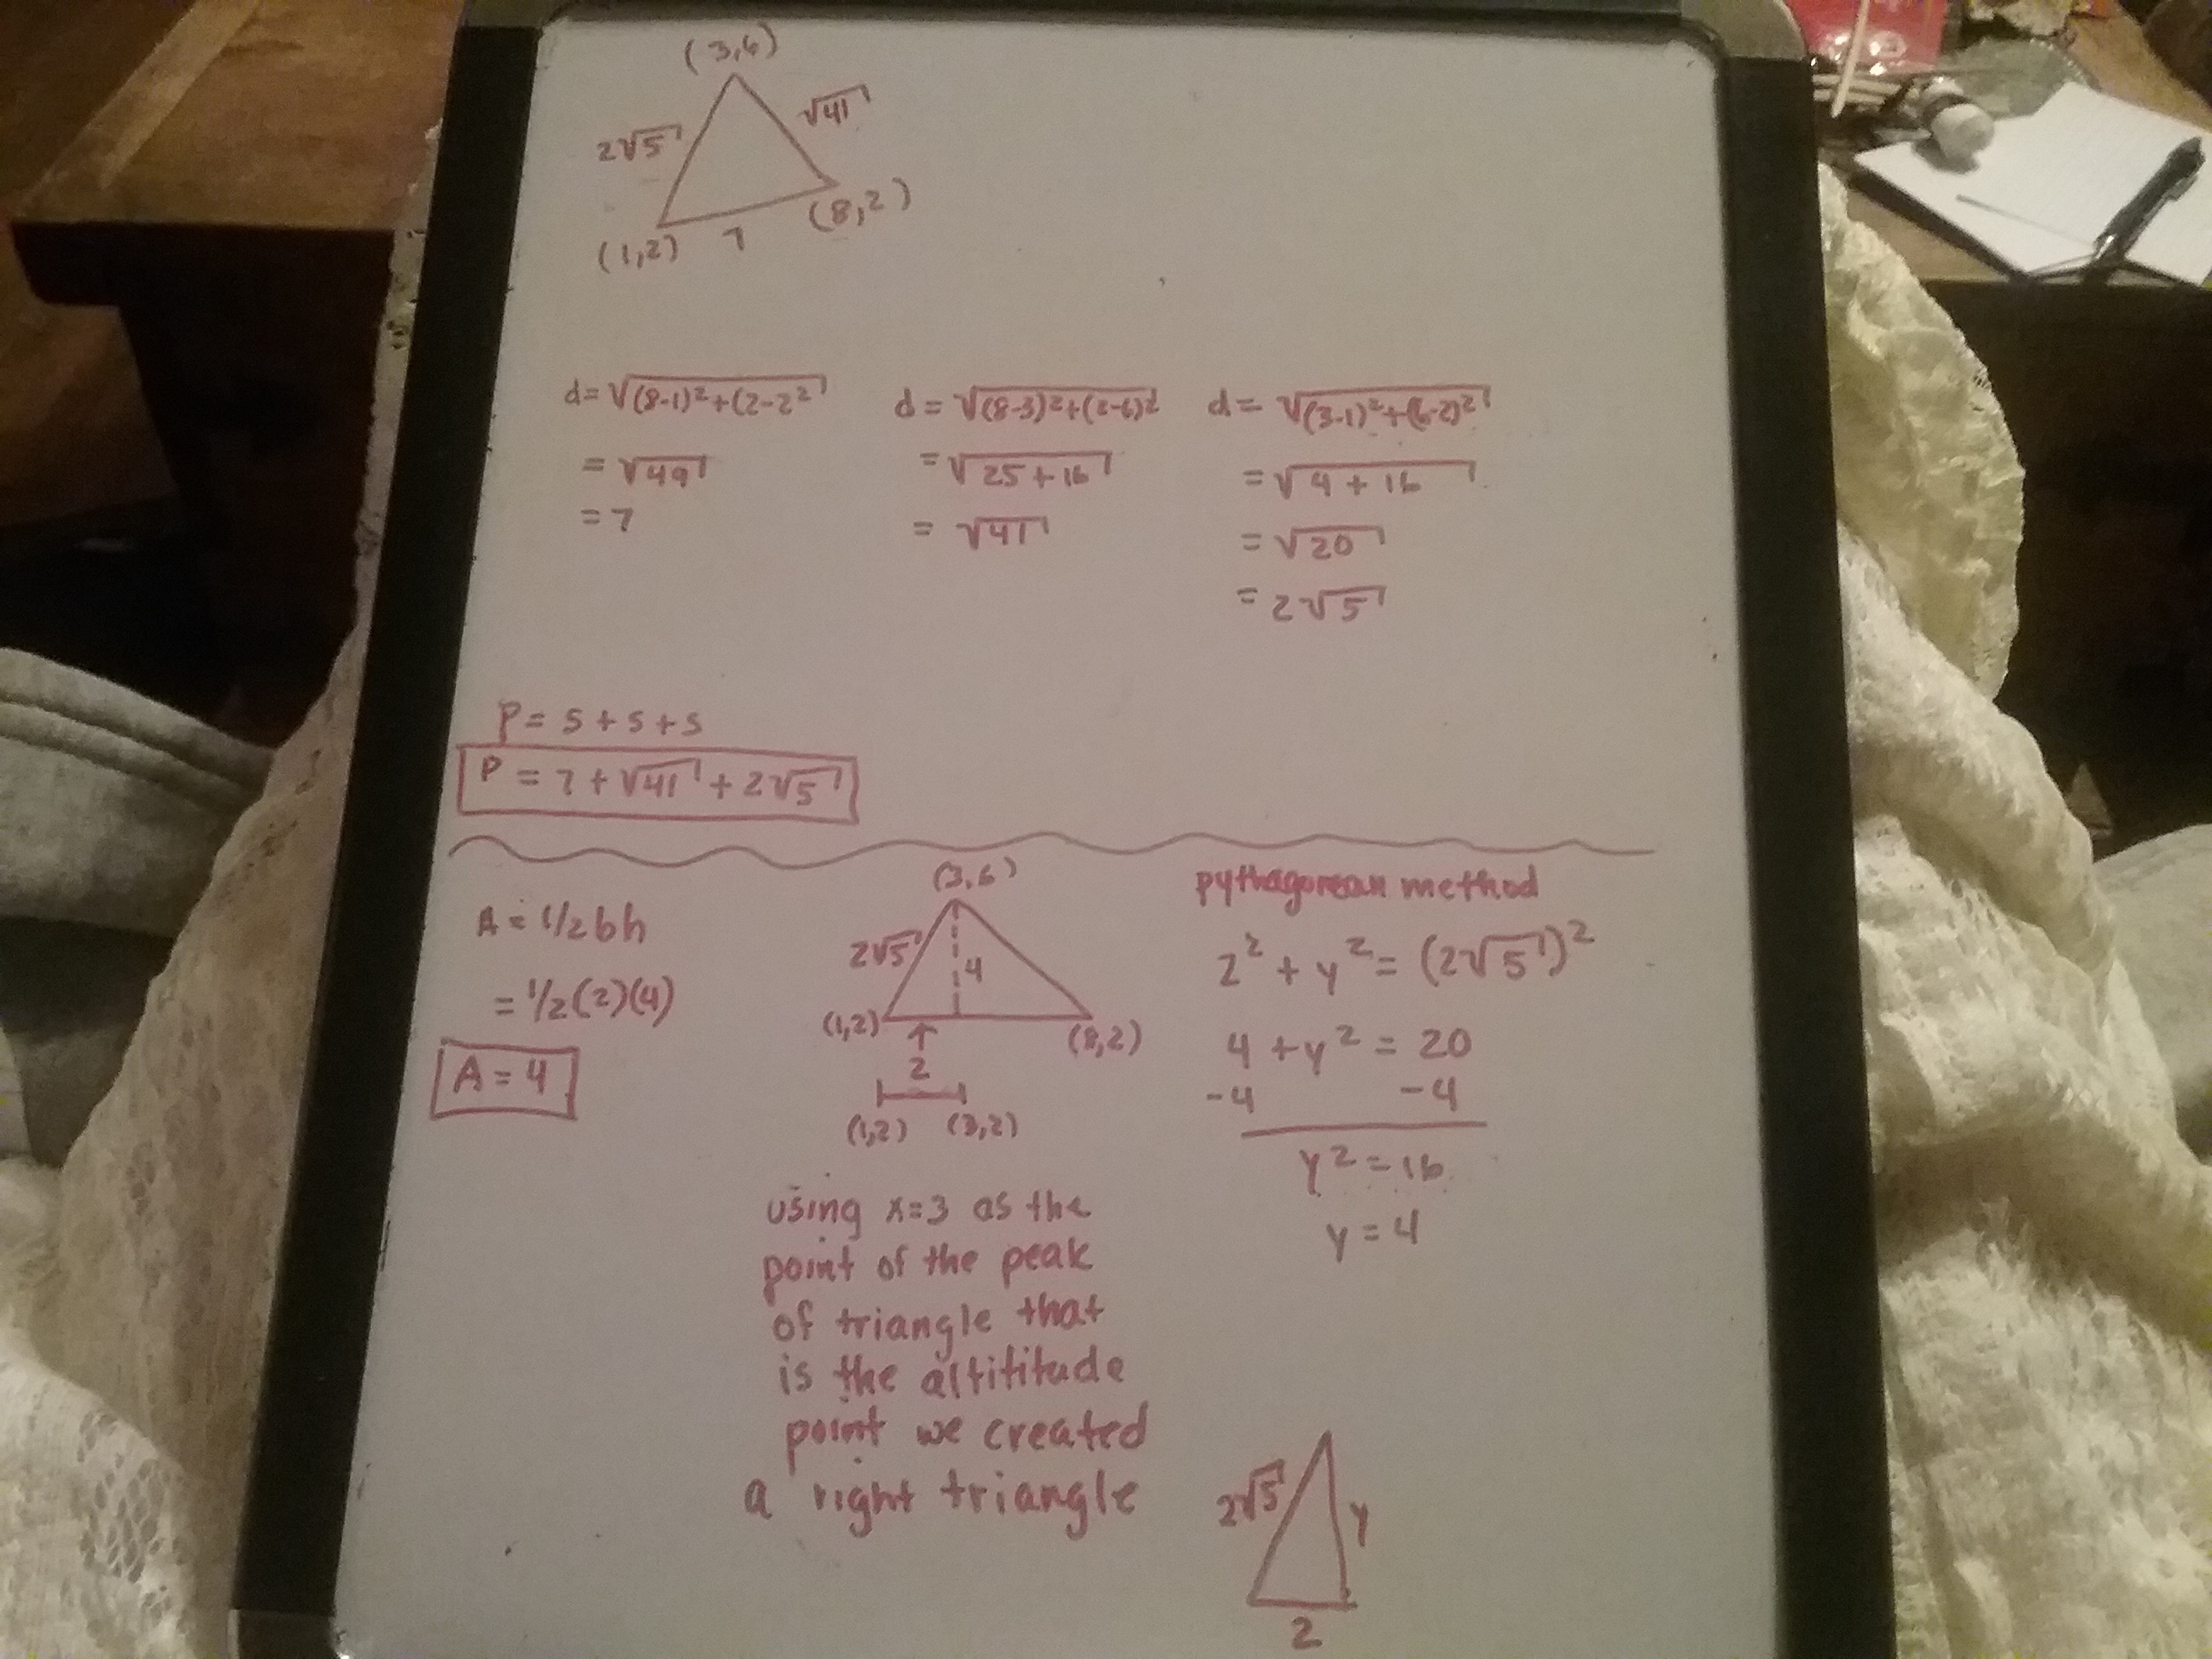 (3,6)
2√5
√41
(8,2)
(1,2)
7
d=√(8-1)²+(2-2²
=√49
=7
d=√(8-3)²+(2-6)²
=√25+16
= √41
d= √(3-1)²+(6-2)²
=√4+16
=√20
= 2√5
P= s+s+s
P = 7+√41+2√5
A=1/2bh
=1/2(2)(4)
A=4
(3,6)
2√5
4
(1,2)
(8,2)
2
(1,2) (3,2)
using x=3 as the
point of the peak
of triangle that
is the altititude
point we created
a right triangle
pythagorean method
2²+y²=(2√5)²
4+y²=20
-4 -4
y²=16
y=4
2√5
y
2